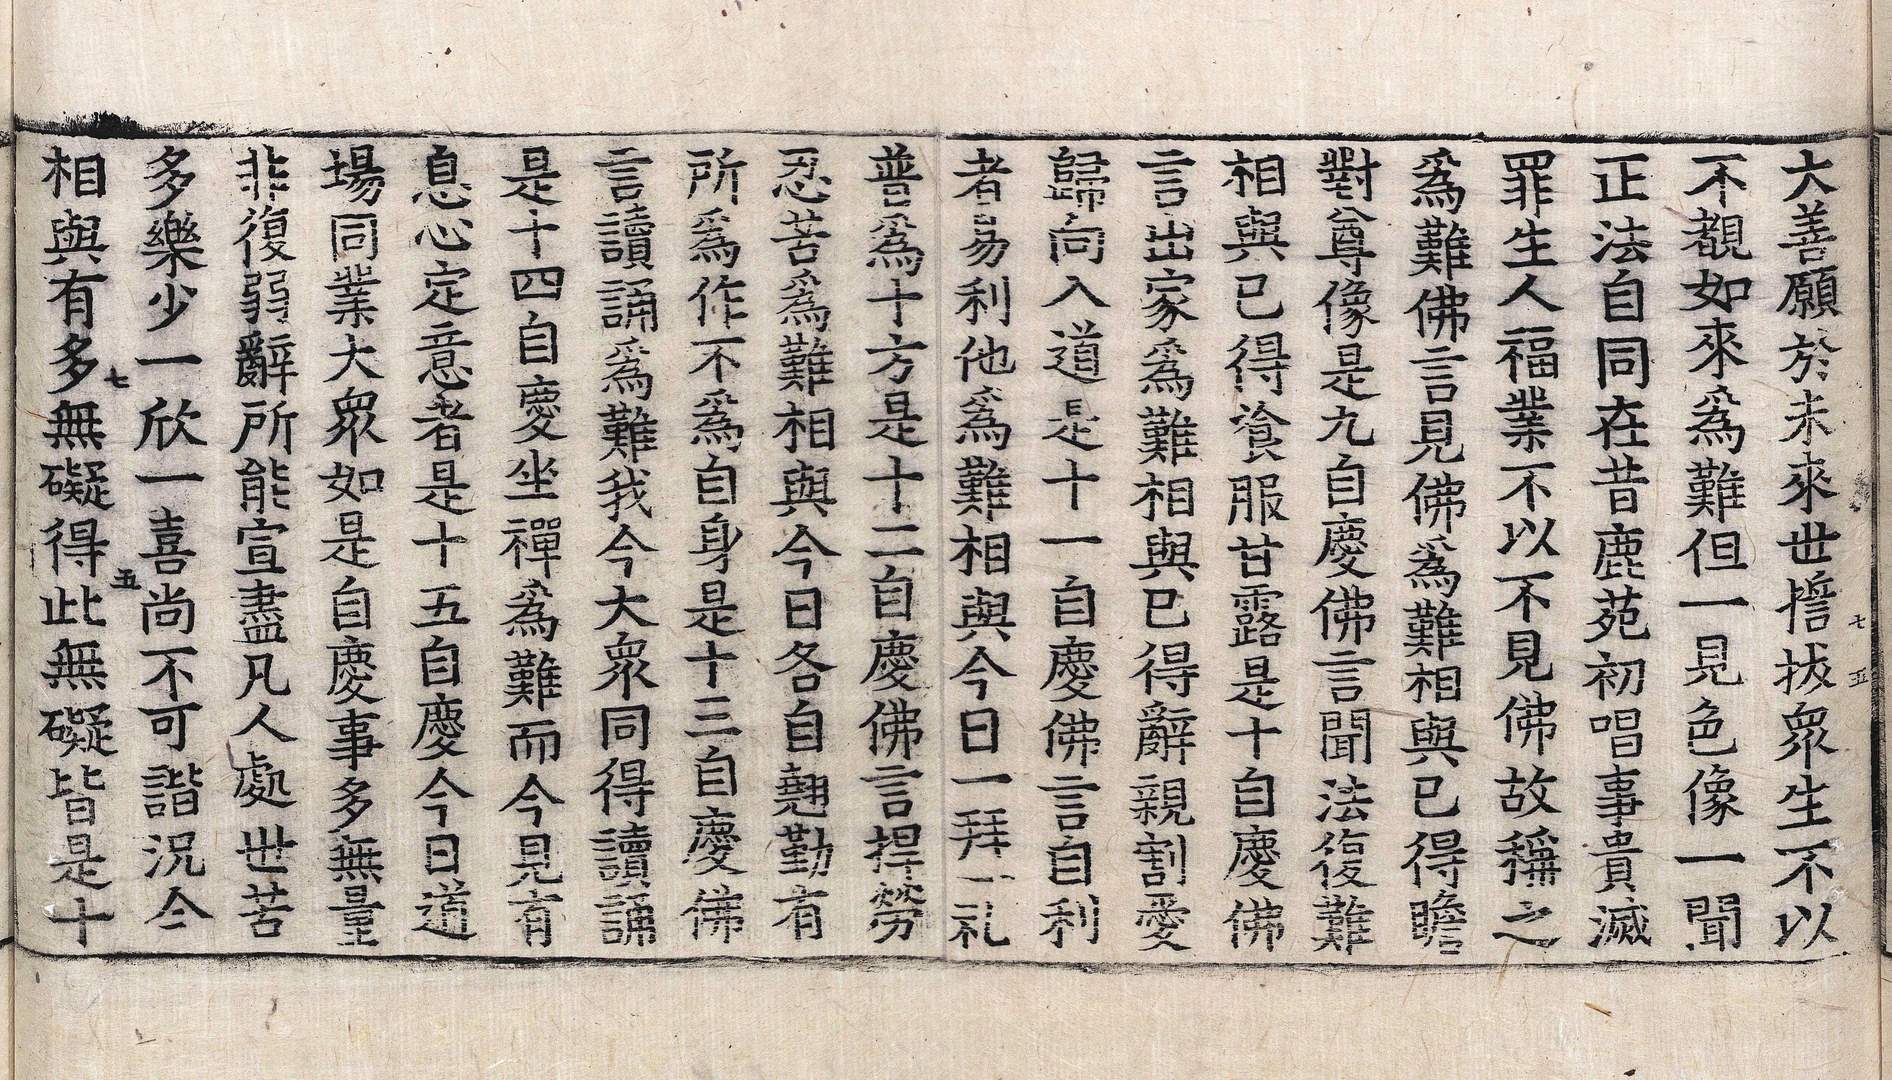 大善願於未來世誓拔衆生不以
不覩如來爲難但一見色像一聞
正法自同在昔鹿苑初唱事貴滅
罪生人福業不以不見佛故稱之
爲難佛言見佛爲難相與已得瞻
對尊像是九自慶佛言聞法復難
相與已得飡服甘露是十自慶佛
言出家爲難相與已得辭親割愛
歸向入道是十一自慶佛言自利
者易利他爲難相與今日一拜一礼
普爲十方是十二自慶佛言捍勞
忍苦爲難相與今日各自翹勤有
所爲作不爲自身是十三自慶佛
言讀誦爲難我今大衆同得讀誦
是十四自慶坐禪爲難而今見有
息心定意者是十五自慶今日道
場同業大衆如是自慶事多無量
非復弱辭所能宣盡凡人處世苦
多樂少一欣一喜尚不可諧況今
相與有多無礙得此無礙皆是十
七 五
七 五